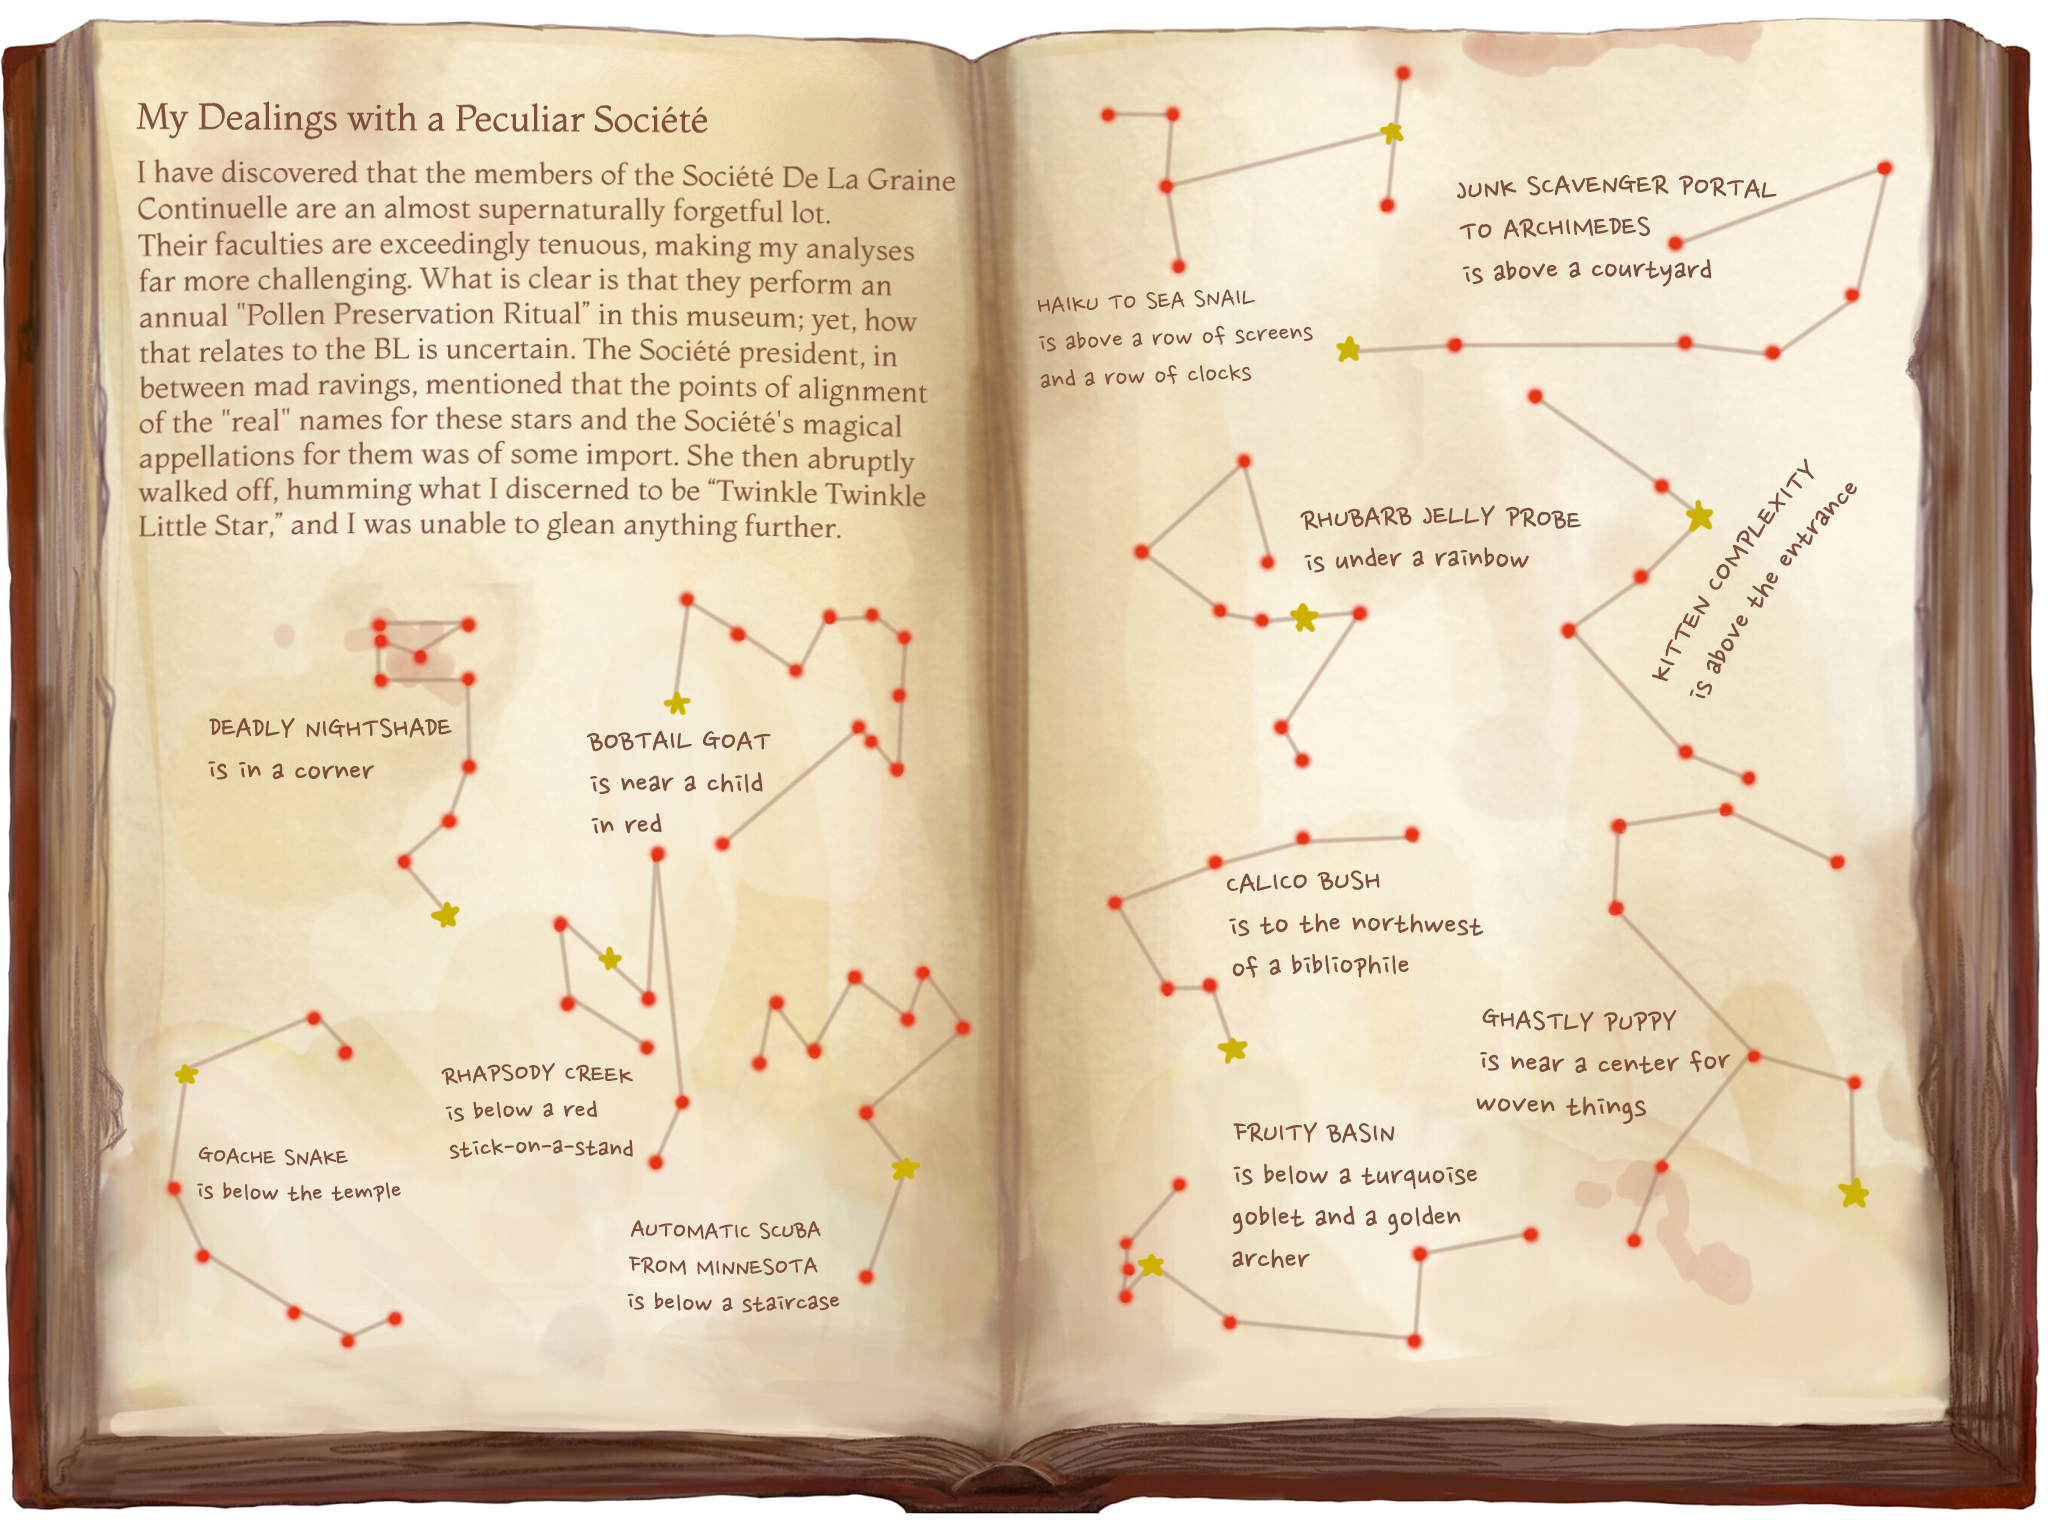 My Dealings with a Peculiar Société
I have discovered that the members of the Société De La Graine
Continuelle are an almost supernaturally forgetful lot.
Their faculties are exceedingly tenuous, making my analyses
far more challenging. What is clear is that they perform an
annual "Pollen Preservation Ritual” in this museum; yet, how
that relates to the BL is uncertain. The Société president, in
between mad ravings, mentioned that the points of alignment
of the "real" names for these stars and the Société's magical
appellations for them was of some import. She then abruptly
walked off, humming what I discerned to be “Twinkle Twinkle
Little Star,” and I was unable to glean anything further.
DEADLY NIGHTSHADE
is in a corner
BOBTAIL GOAT
is near a child
in red
RHAPSODY CREEK
is below a red
stick-on-a-stand
GOACHE SNAKE
is below the temple
AUTOMATIC SCUBA
FROM MINNESOTA
is below a staircase
JUNK SCAVENGER PORTAL
TO ARCHIMEDES
is above a courtyard
HAIKU TO SEA SNAIL
is above a row of screens
and a row of clocks
RHUBARB JELLY PROBE
is under a rainbow
KITTEN COMPLEXITY
is above the entrance
CALICO BUSH
is to the northwest
of a bibliophile
GHASTLY PUPPY
is near a center for
woven things
FRUITY BASIN
is below a turquoise
goblet and a golden
archer